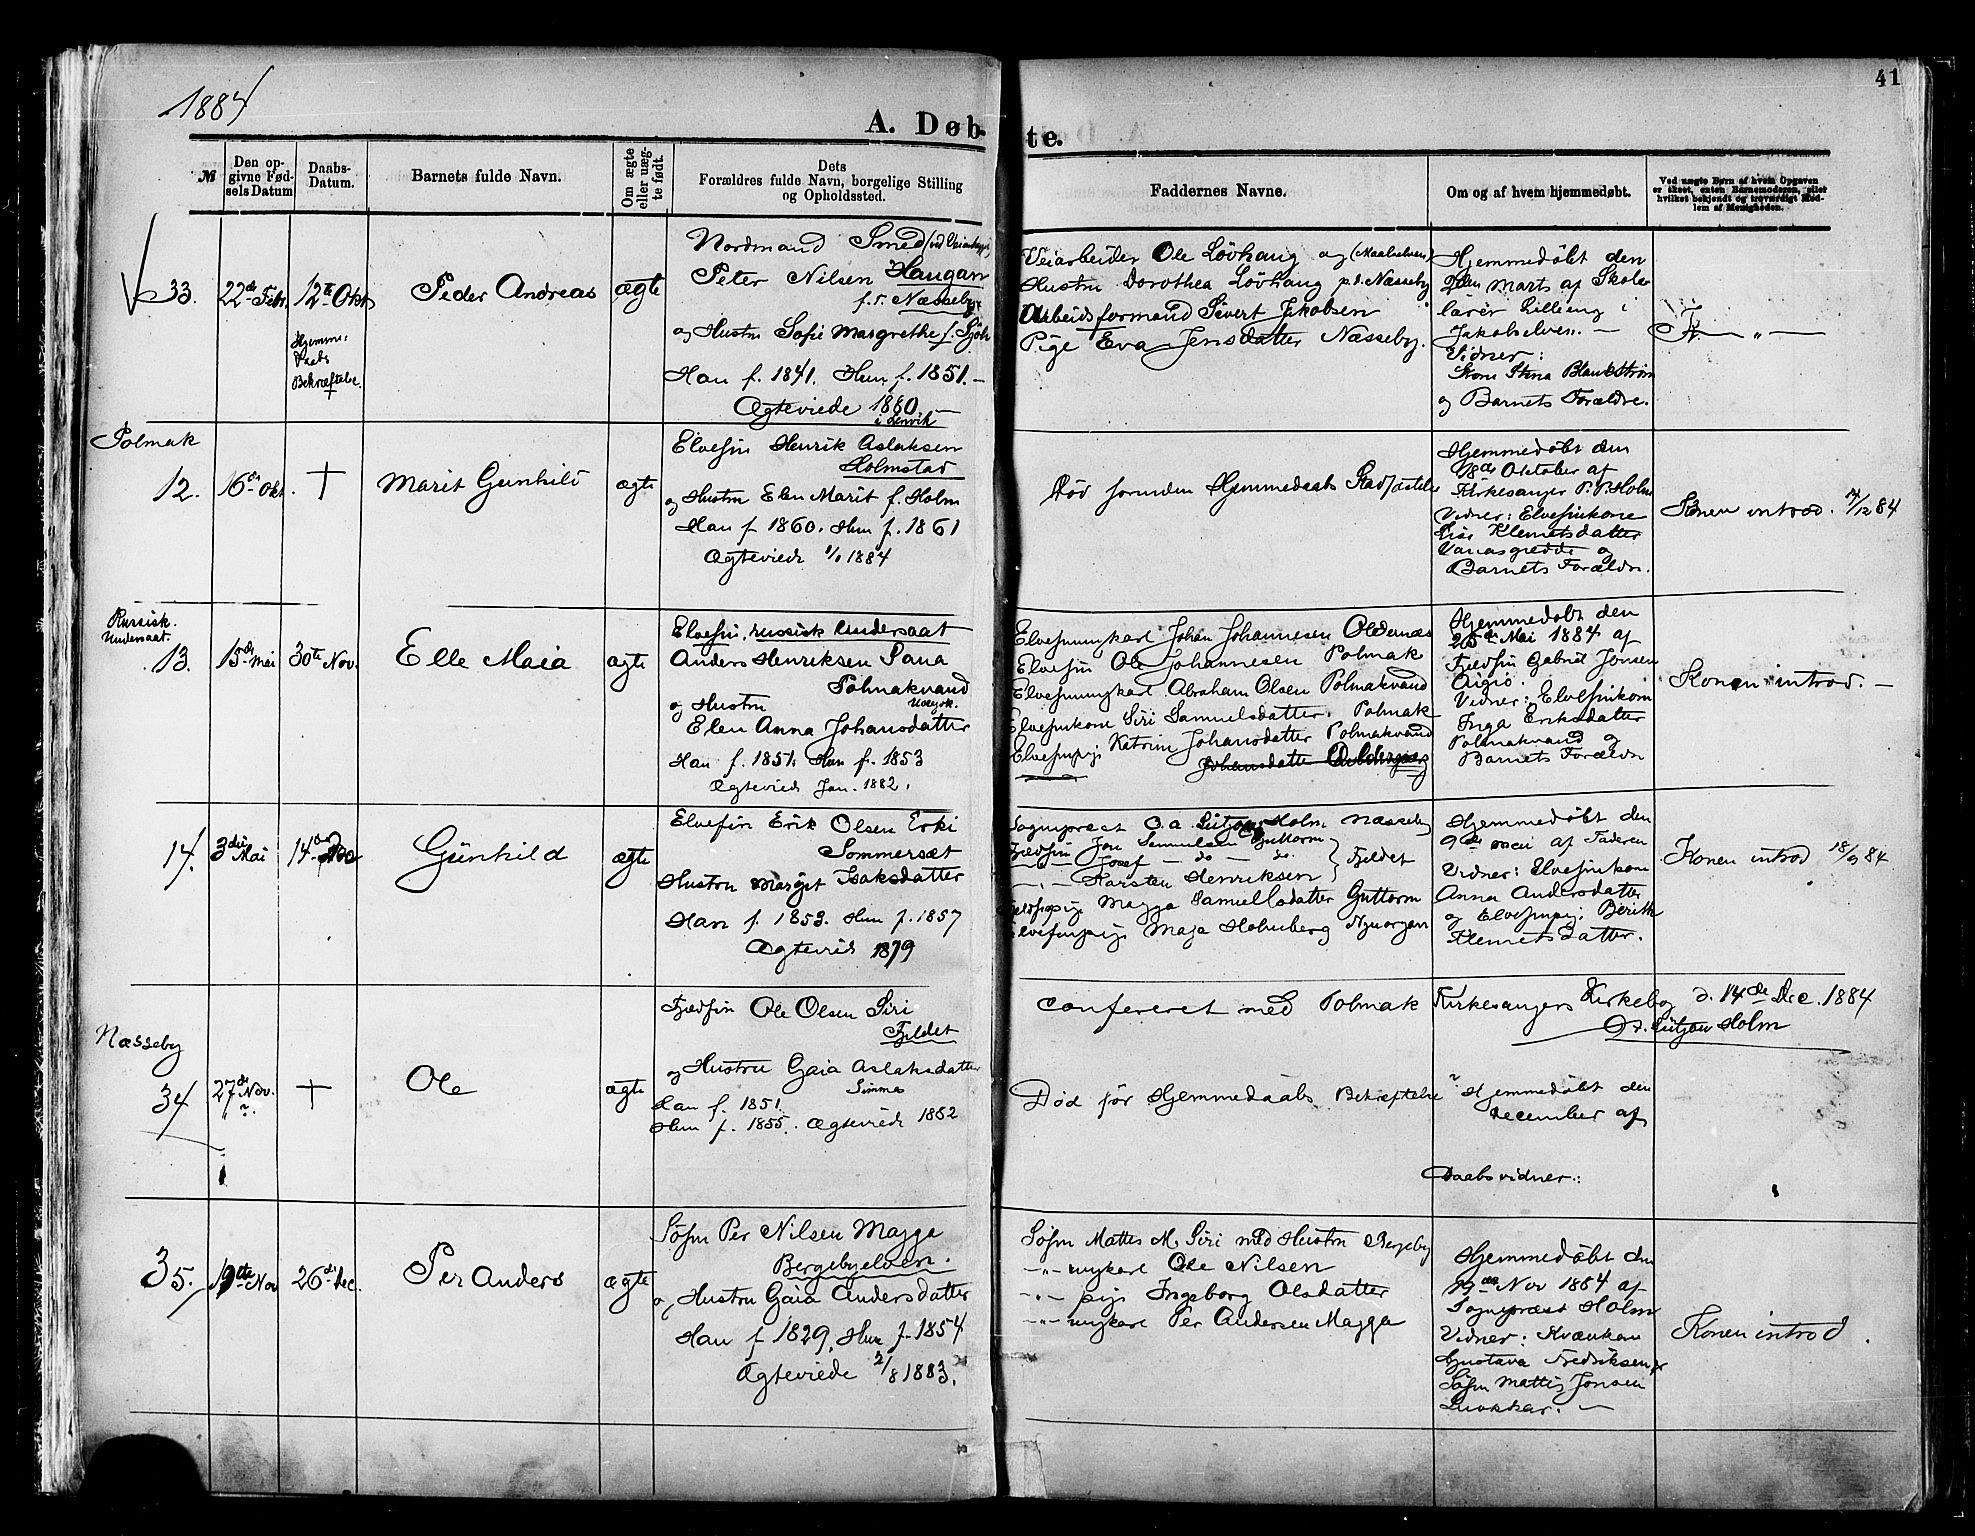 1884
41
A. Døbte.
№
Den opgivne Fødsels Datum
Daabs-Datum.
Barnets fulde Navn.
Om ægte eller uægte født.
Dets Forældres fulde Navn, borgelige Stilling og Opholdssted.
Faddernes Navne.
Om og af hvem hjemmedøbt.
Ved uægte Børn af hvem Opgaven er skeet, enten Barnemoderen, eller hvilket bekjendt og troværdigt Medlem af Menigheden.
33.
22de Febr.
12te Okt
Hjemme-
daabs
Bekræftelse.
Peder Andreas
ægte
Nordmand Smed
Peter Nilsen Haugan
f. t. Næsseby
og Hustru Sofie Margrethe f.
Han f. 1841. Hun f. 1851. —
Ægteviede 1880. —
i Lenvik
Veiarbeider Ole Lövhaug og (Maalselven)
Hustru Dorothea Lövhaug p.t. Næsseby
Arbeidsformand Sivert Jakobsen
Pige Eva Jensdatter Næsseby.
Hjemmedøbt den
2den Marts af Skole-
lærer Lilleeng i
Jakobselven. —
Vidner:
Kone Stina
og Barnets Forældre.
K — „ —
Polmak
12.
16de Okt.
†
Marit Gunhild
ægte
Elvefin Henrik Aslaksen
Holmstad
og Hustru Elen Marit f. Holm
Han f 1860. Hun f. 1861
Ægteviede 1/1 1884
Død forinden Hjemmedaabs Stadfæstelse
Hjemmedøbt den
18de Oktober af
Kirkesanger P. P. Holm
Vidner: Elvefinkone
Klemetsdatter
og
Barnets Forældre.
Konen introd. 14/12 84
Russisk
Undersaat.
13.
15de Mai
30te Nov.
Elle Maia
ægte
Elvefin, russisk Undersaat
Anders Henriksen
Polmakvand
og Hustru
Elen Anna Johansdatter
Han f. 1851. Hun f. 1853
Ægteviede Jan. 1882.
Elvefinungkarl Johan Johannesen Oldernæs
Elvefin Ole Johannesen Polmak
Elvefinungkarl Abraham Olsen Polmakvand
Elvefinkone Siri Samuelsdatter Polmak
Elvefinpige Katrine Johansdatter Polmakvand
Johansdatter
Hjemmedøbt den
25de Mai 1884 af
Fjeldfin Gabriel Jonsen
Vidner: Elvefinkone
Inga Eriksdatter
Polmakvand og
Barnets Forældre
Konen introd. —
14.
3die Mai
14de Dec
Gunhild
ægte
Elvefin Erik Olsen Erki
Sommersæt
Hustru Margit Isaksdatter
Han f. 1853. Hun f. 1857
Ægteviede 1879
Sognepræst O. A. Lütjow Holm Næsseby
Fjeldfin Jon Samuelsen Guttorm
— „ — Josef — do — do.
— „ — Karsten Henriksen
Fjeldet
Fjeldfinpige Magga Samuelsdatter Guttorm
Elvefinpige Maja Holmberg Nyaorgen
Hjemmedøbt den
9de Mai af Faderen
Vidner: Elvefinkone
Anna Andersdatter
og Elvefinpige Berith
Klemetsdatter.
Konen introd 18/9 84
Confereret med Polmak Kirkesangers Kirkebog d. 14de Dec. 1884
O. A. Lütjow Holm
Næsseby
34
27de Nov.
?
†
Ole
ægte
Fjeldfin Ole Olsen Siri
Fjeldet
og Hustru Gaia Aslaksdatter
Simma
Han f. 1851
Hun f. 1855. Ægteviede 1882
Død før Hjemmedaabs Bekræftelse
? Hjemmedøbt den
December af
Daabsvidner:
35.
19de Nov
26de Dec.
Per Anders
ægte
Søfin Per Nilsen Magga
Bergebyelven.
og Hustru Gaia Andersdatter
Han f 1829. Hun f. 1854
Ægteviede 2/8 1883.
Søfin Mattis M. Siri med Hustru Bergeby
— „ — ungkarl Ole Nilsen
— „ — pige Ingeborg Olsdatter
— „ — ungkarl Per Andersen Magga
Hjemmedøbt den
19de Nov 1884 af
Sognepræst Holm
Vidner: Kvænkone
Gustava Fredriksen og
Søfin Mattis Jonsen
Konen introd.